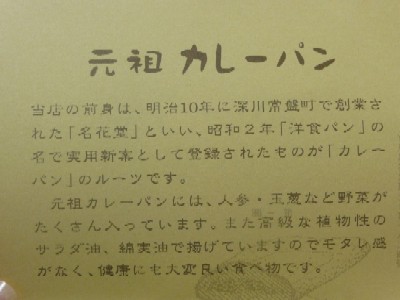 元祖 カレーパン
当店の前身は、明治10年に深川常盤町で創業さ
れた「名花堂」といい、昭和2年「洋食パン」の
名で実用新案として登録されたものが「カレー
パン」のルーツです。
元祖カレーパンには、人参・玉葱など野菜が
たくさん入っています。また高級な植物性の
サラダ油、綿実油で揚げていますのでモタレ感
がなく、健康にも大変良い食べ物です。